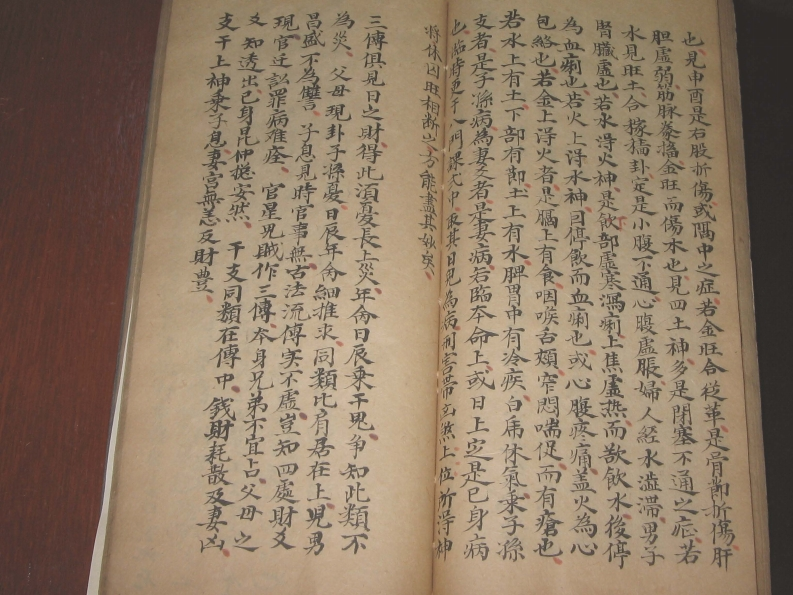 也見申酉是右股折傷或隔中之症若金旺合從革是骨節折傷肝
胆虛弱筋脉拳搐金旺而傷木也見四土神多是閉塞不通之症若
水見旺土合稼穡卦定是小腹不通心腹虛脹婦人經水澁滯男子
腎臟虛也若水淂火神是飲部虛寒瀉痢上焦虛热而歆飲水後停
為血痢也若火上淂水神因停飲而血痢也或心腹疼痛盖火為心
包絡也若金上淂火者是膈上有食咽喉舌頰窄悶喘促而有瘡也
若水上有土下部有即土上有水脾胃中有冷疾白虎休氣乘子孫
支者是子孫病為妻爻者是妻病若臨夲命上或日上定是已身病
也臨時更于入門課式中取其日見為病刑害帶玄煞上位所淂神
將休囚旺相断之方能盡其妙矣
三傳俱見日之財得此須憂長上災年命日辰乘干鬼争知此類不
為災父母現卦子孫憂日辰年命細推求同類比肩居在上児男
昌盛不為讐子息見時官事無古法流傳实不虛豈知四處財爻
現官迁訟罪病难痊官星鬼賊作三傳夲身兄弟不宜占父母之
爻知透出己身昆仲挺安然干支同類在傳中錢財耗散及妻凶
支干上神乘子息妻宮無恙及財豊